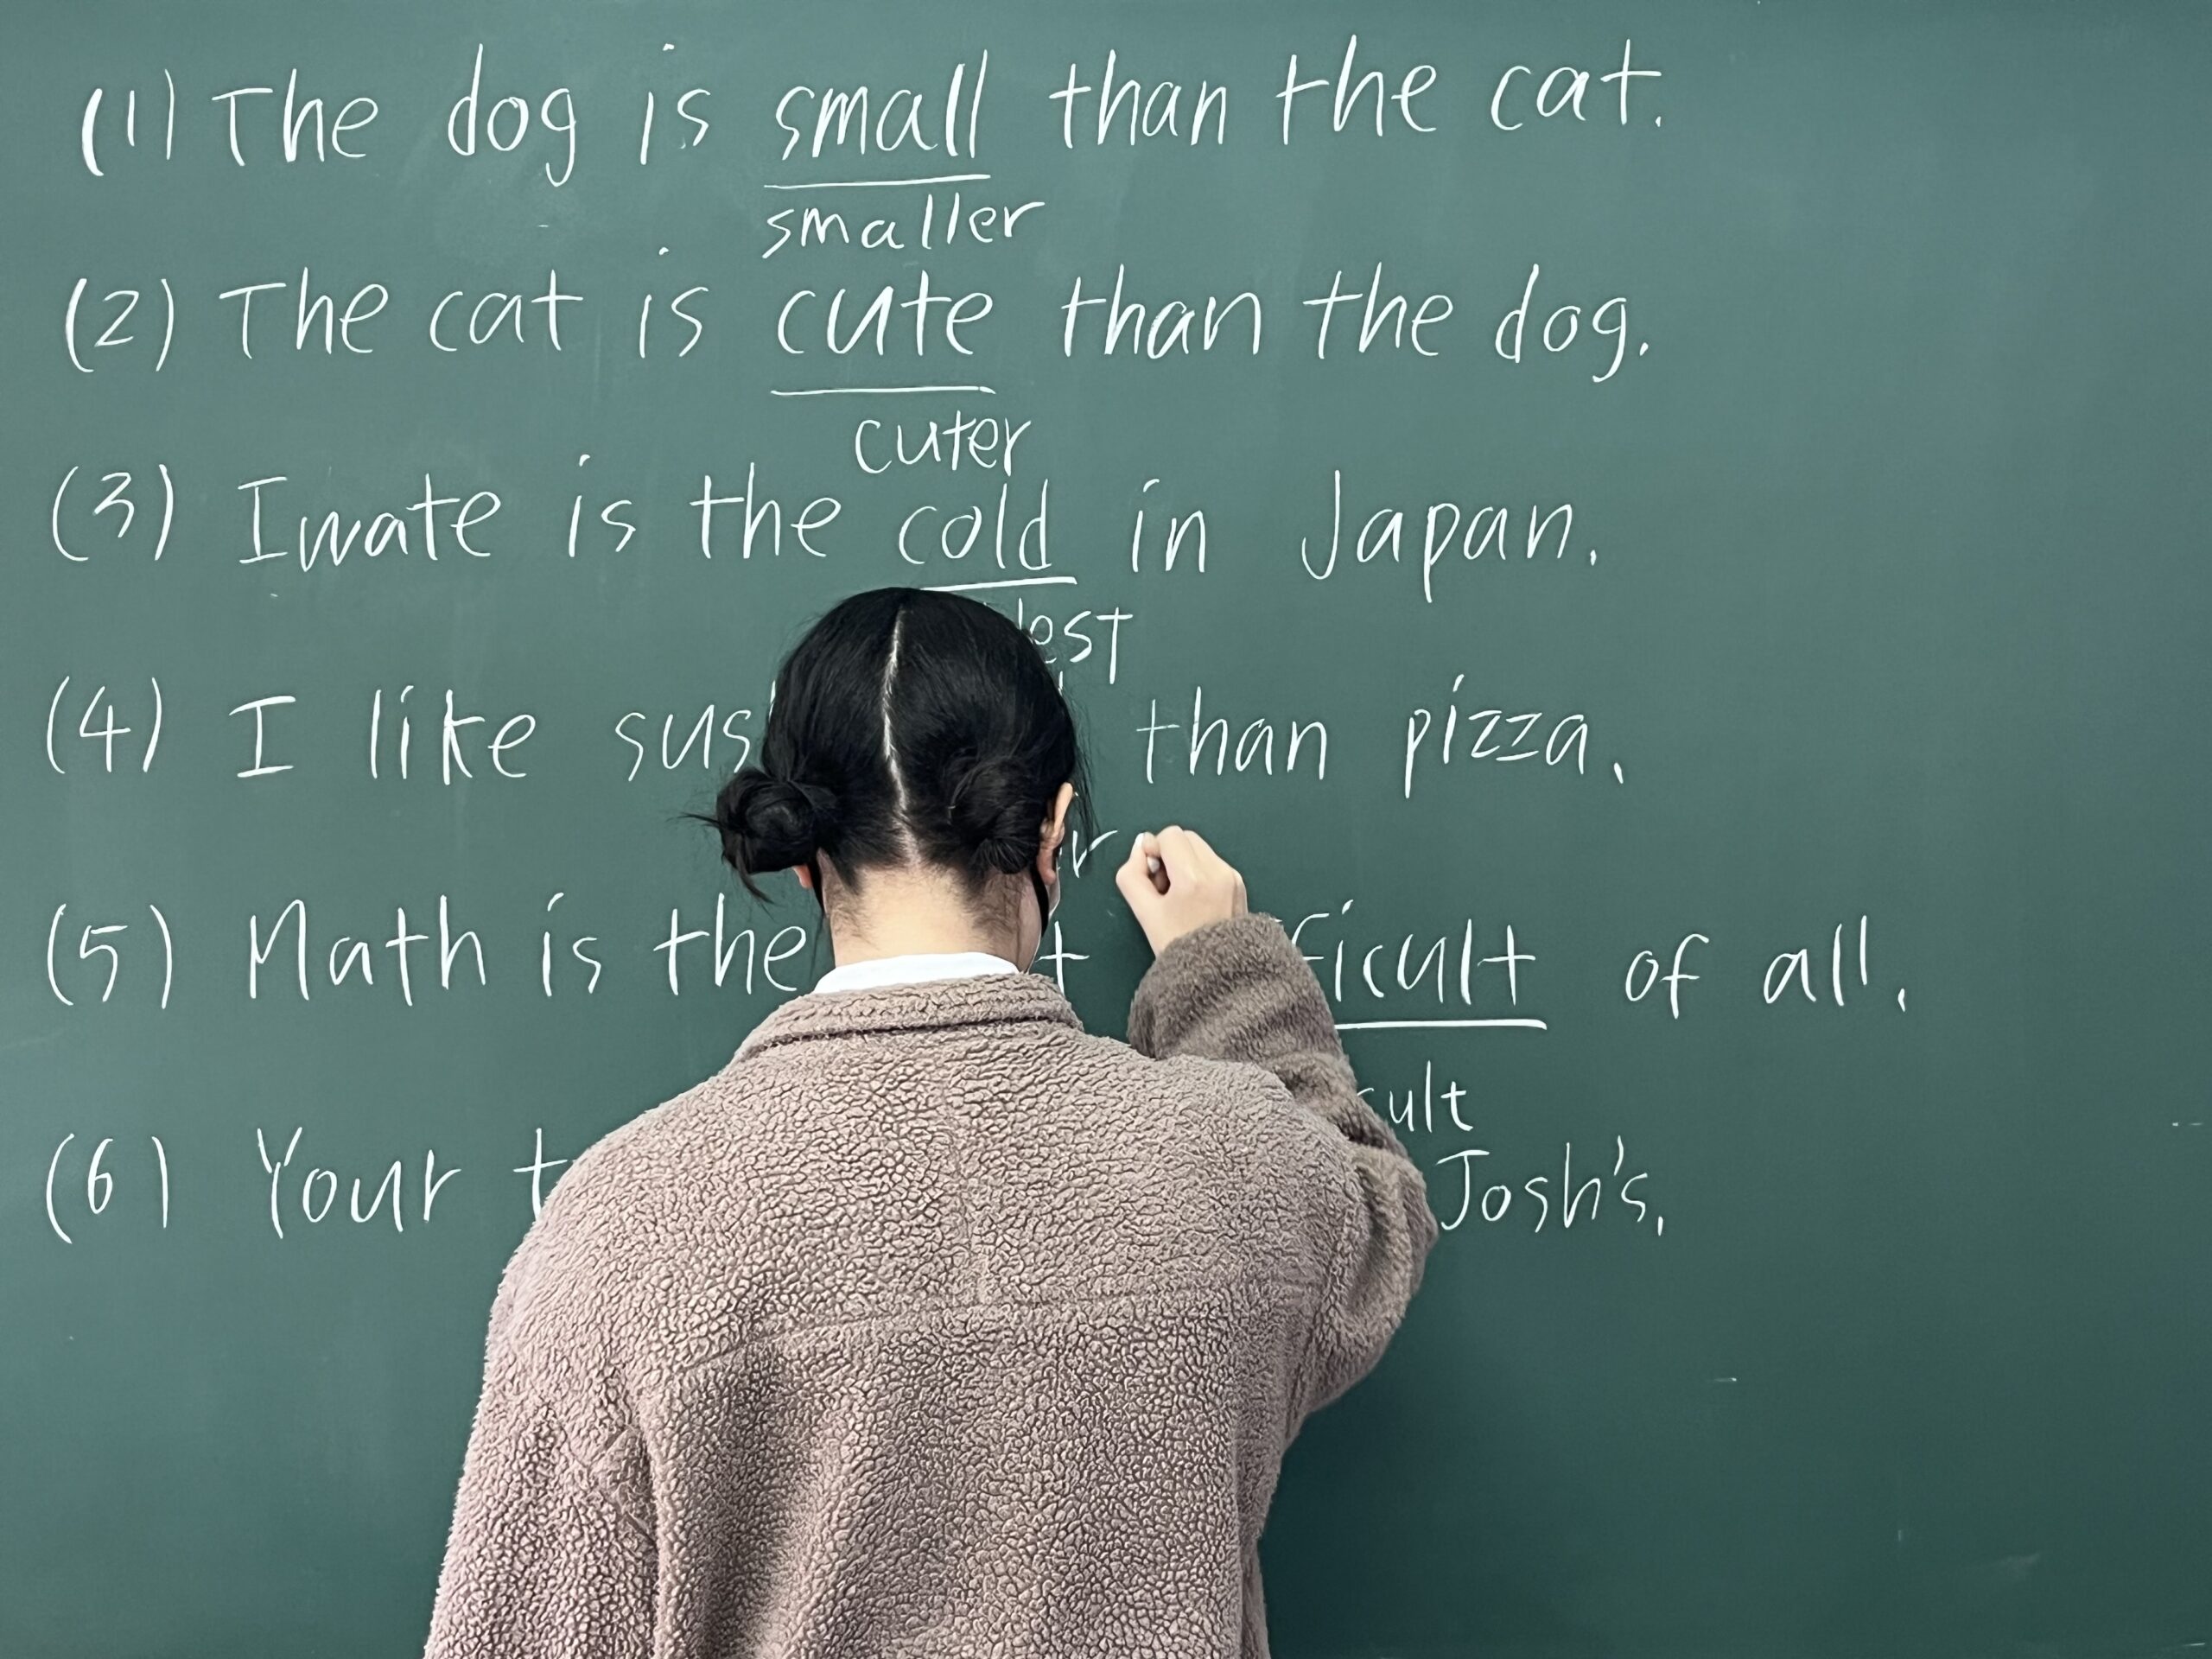 (1) The dog is small than the cat.
smaller
(2) The cat is cute than the dog.
cuter
(3) Iwate is the cold in Japan.
(4) I like than pizza.
(5) Math is the of all.
(6) Your Josh's.